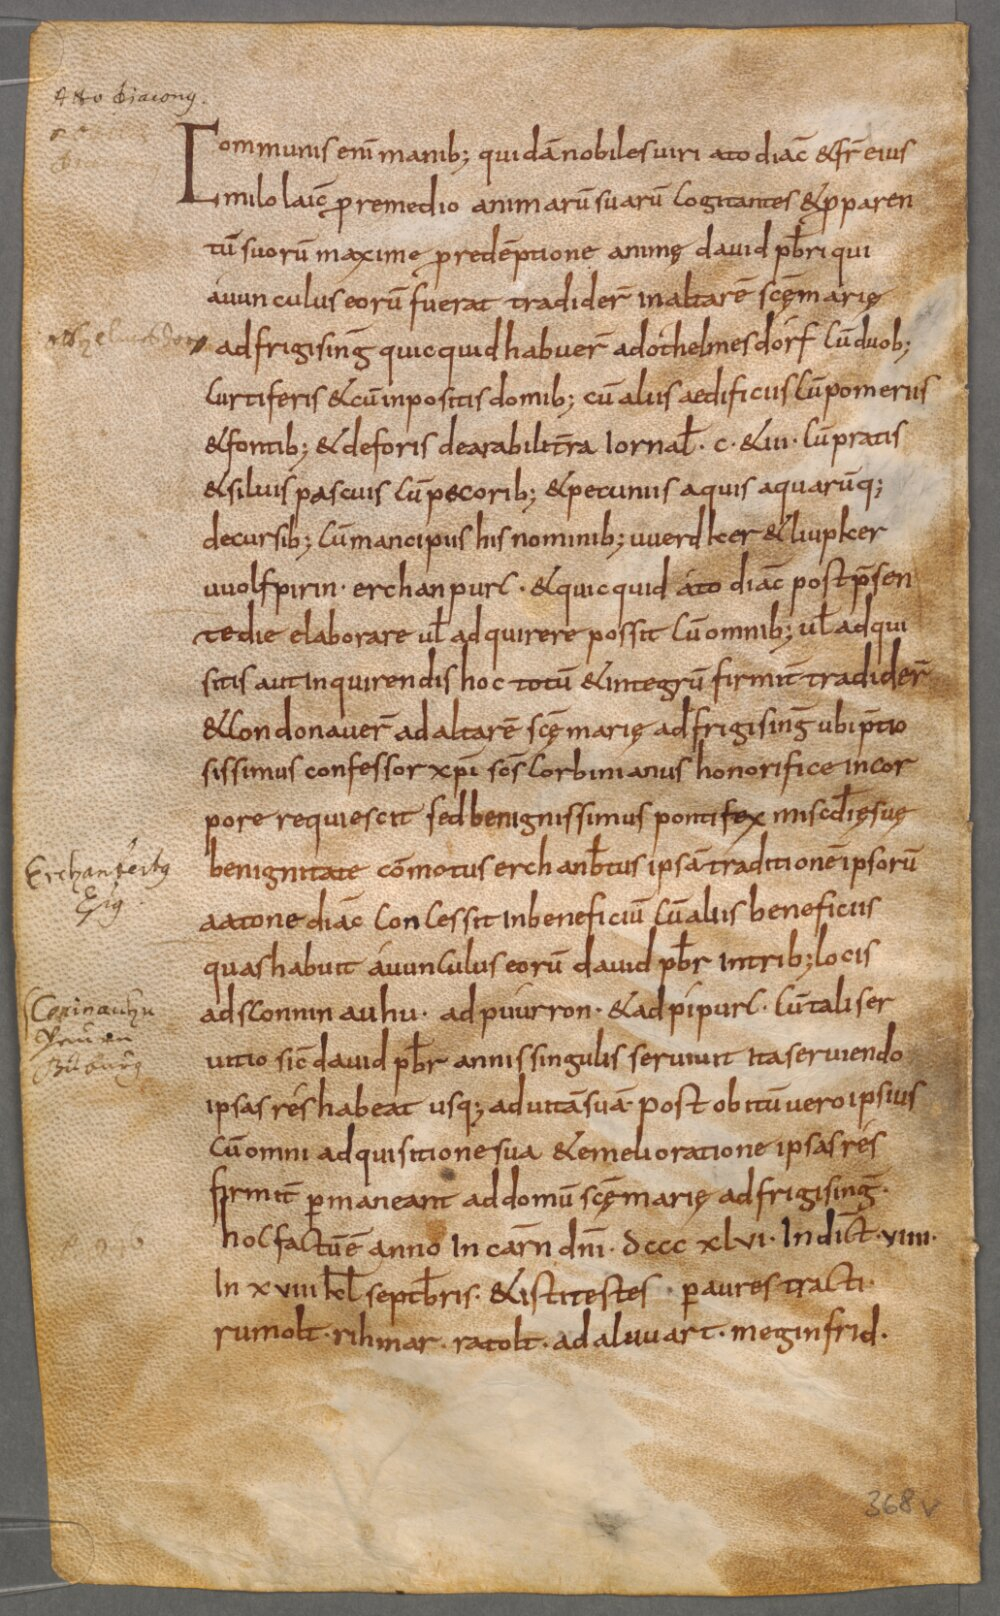 Atto diaconꝯ.
Communis enī manib; quidā nobiles uiri ato diac̄ & fr̄ eius
milo laic̄ ꝓ remedio animarū suarū cogitantes & ꝓ paren
tū suorū maxime ꝓ redēptione animę dauid pb̄ri qui
auunculus eorū fuerat tradider̄ in altarē scęmarię
ad frigisinḡ quicquid habuer̄ ad othelmesdorf cū duob;
curtiferis & cū inpositis domib; cū aliis aedificiis cū pomeriis
& fontib; & deforis de arabili tr̄a iornal̄· c· & iii· cū pratis
& siluis pascuis cū pecorib; & pecuniis aquis aquarūq;
decursib; cū mancipiis his nominib; uuerdker & liupker
uuolfpirin· erchanpurc· & quicquid ato diac̄ post p̄sen
te die elaborare ul̄ adquirere possit cū omnib; ul̄ adqui
sitis aut inquirendis hoc totū & integrū firmit̄ tradider̄
& condonauer̄ ad altarē scę marię ad frigisinḡ ubi p̄tio
sissimus confessor xp̄i sc̄s corbinianus honorifice in cor
pore requiescit sed benignissimus pontifex miscd̄ię suę
Erchanbertꝯ
Ep̄ꝯ
benignitate cōmotus erchanb̄tus ipsā traditionē ipsorū
a atone diac̄ concessit in beneficiū cū aliis beneficiis
quas habuit auunculus eorū dauid pb̄r in trib; locis
ad sconninauhu· ad piuurron· & ad pipurc· cū tali ser
uitio sic̄ dauid pb̄r annis singulis seruiuit ita seruiendo
ipsas rés habeat usq; ad uitā suā post obitū uero ipsius
cū omni adquisitione sua & emelioratione ipsas rés
firmit̄ ꝑmaneant ad domū scę marię ad frigisinḡ·
hoc factū ē anno incarn̄ dn̄i· dccc xlvi· indic̄t· viiii·
in xviiii kl̄ septb̄ris· & isti testes· ꝑ aures tracti·
rumolt· rihmar· ratolt· adaluuart· meginfrid·
368v